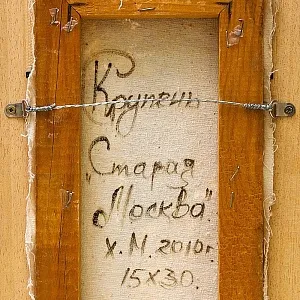 Крупень
"Старая
Москва".
х.М. 2010г.
15х30.